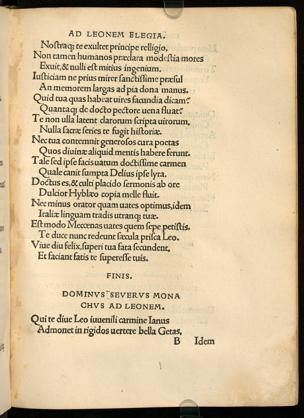 AD LEONEM ELEGIA.
Nostraq; te exultet principe relligio,
Non tamen humanos præclara modestia mores
Exuit, & nulli est mitius ingenium.
Iusticiam ne prius mirer sanctissime præsul
An memorem largas ad pia dona manus.
Quid tua quas habeat uires facundia dicam?
Quantaq; de docto pectore uena fluat?
Te non ulla latent clarorum scripta uirorum,
Nulla sacræ series te fugit historiæ.
Nec tua contemnit generosos cura poetas
Quos diuinæ aliquid mentis habere ferunt.
Tale sed ipse facis uatum doctissime carmen
Quale canit sumpta Delius ipse lyra.
Doctus es, & culti placido sermonis ab ore
Dulcior Hyblæo copia melle fluit.
Nec minus orator quam uates optimus, idem
Italiæ linguam tradis utranq; tuæ.
Est modo Mecœnas uates quem sepe petistis.
Te duce nunc redeunt sæcula prisca Leo.
Viue diu felix, superi tua fata secundent,
Et faciant fatis te superesse tuis.
FINIS.
DOMINVS SEVERVS MONA
CHVS AD LEONEM.
Qui te diue Leo iuuenili carmine Ianus
Admonet in rigidos uertere bella Getas,
B Idem